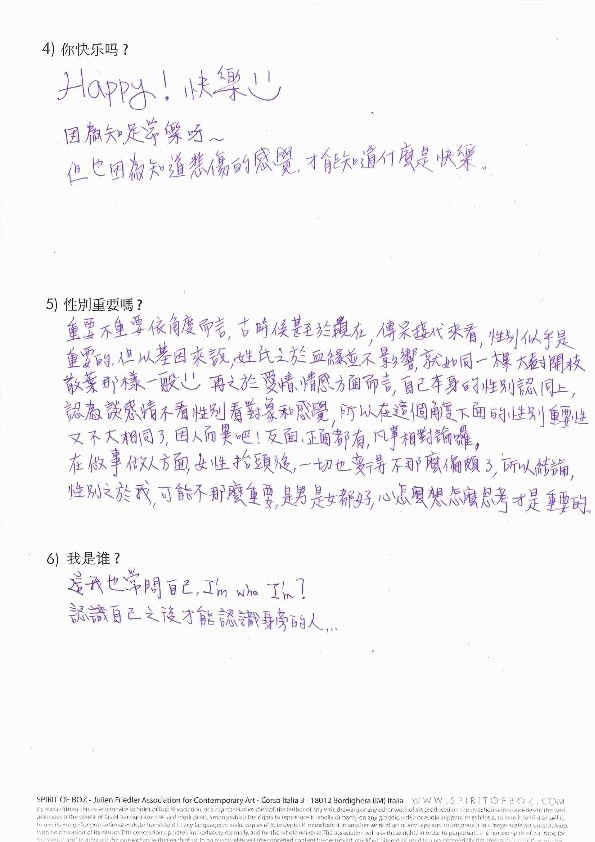 4) 你快乐吗？
Happy! 快樂
因為知足常樂呀～
但也因為知道悲傷的感覺，才能知道什麼是快樂。
5) 性別重要嗎？
重要不重要依角度而言，古時侯甚至於現在，傳宗接代來看，性別似乎是
重要的，但以基因來說，姓氏之於血緣並不影響，就如同一棵大樹開枝
散葉那樣一般 再之於愛情、情感方面而言，自己本身的性別認同上，
認為談感情不看性別看對象和感覺，所以在這個角度下面的性別重要性
又不大相同了，因人而異吧！反面、正面都有，凡事相對論囉。
在做事做人方面，女性抬頭後，一切也變得不那麼偏頗了，所以結論，
性別之於我，可能不那麼重要，是男是女都好，心怎麼想怎麼思考才是重要的。
6) 我是谁？
這我也常問自己，I'm who I'm?
認識自己之後才能認識身旁的人...
SPIRIT OF BOZ - Julien Friedler Association for Contemporary Art - Corso Italia 3 - 18012 Bordighera (IM) Italia WWW.SPIRITOFBOZ.COM